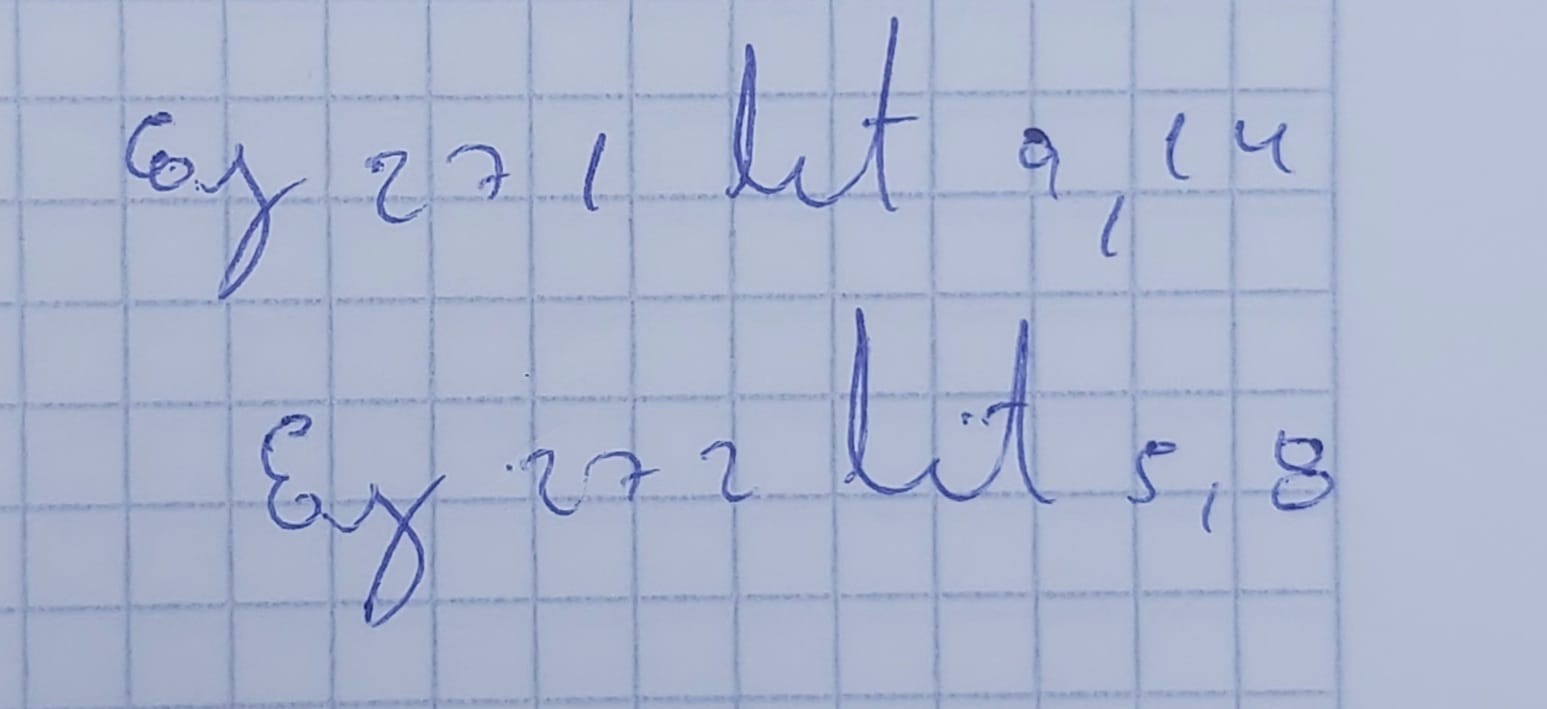 Ey 271 lit 9, 14
Ey 272 lit 5, 8